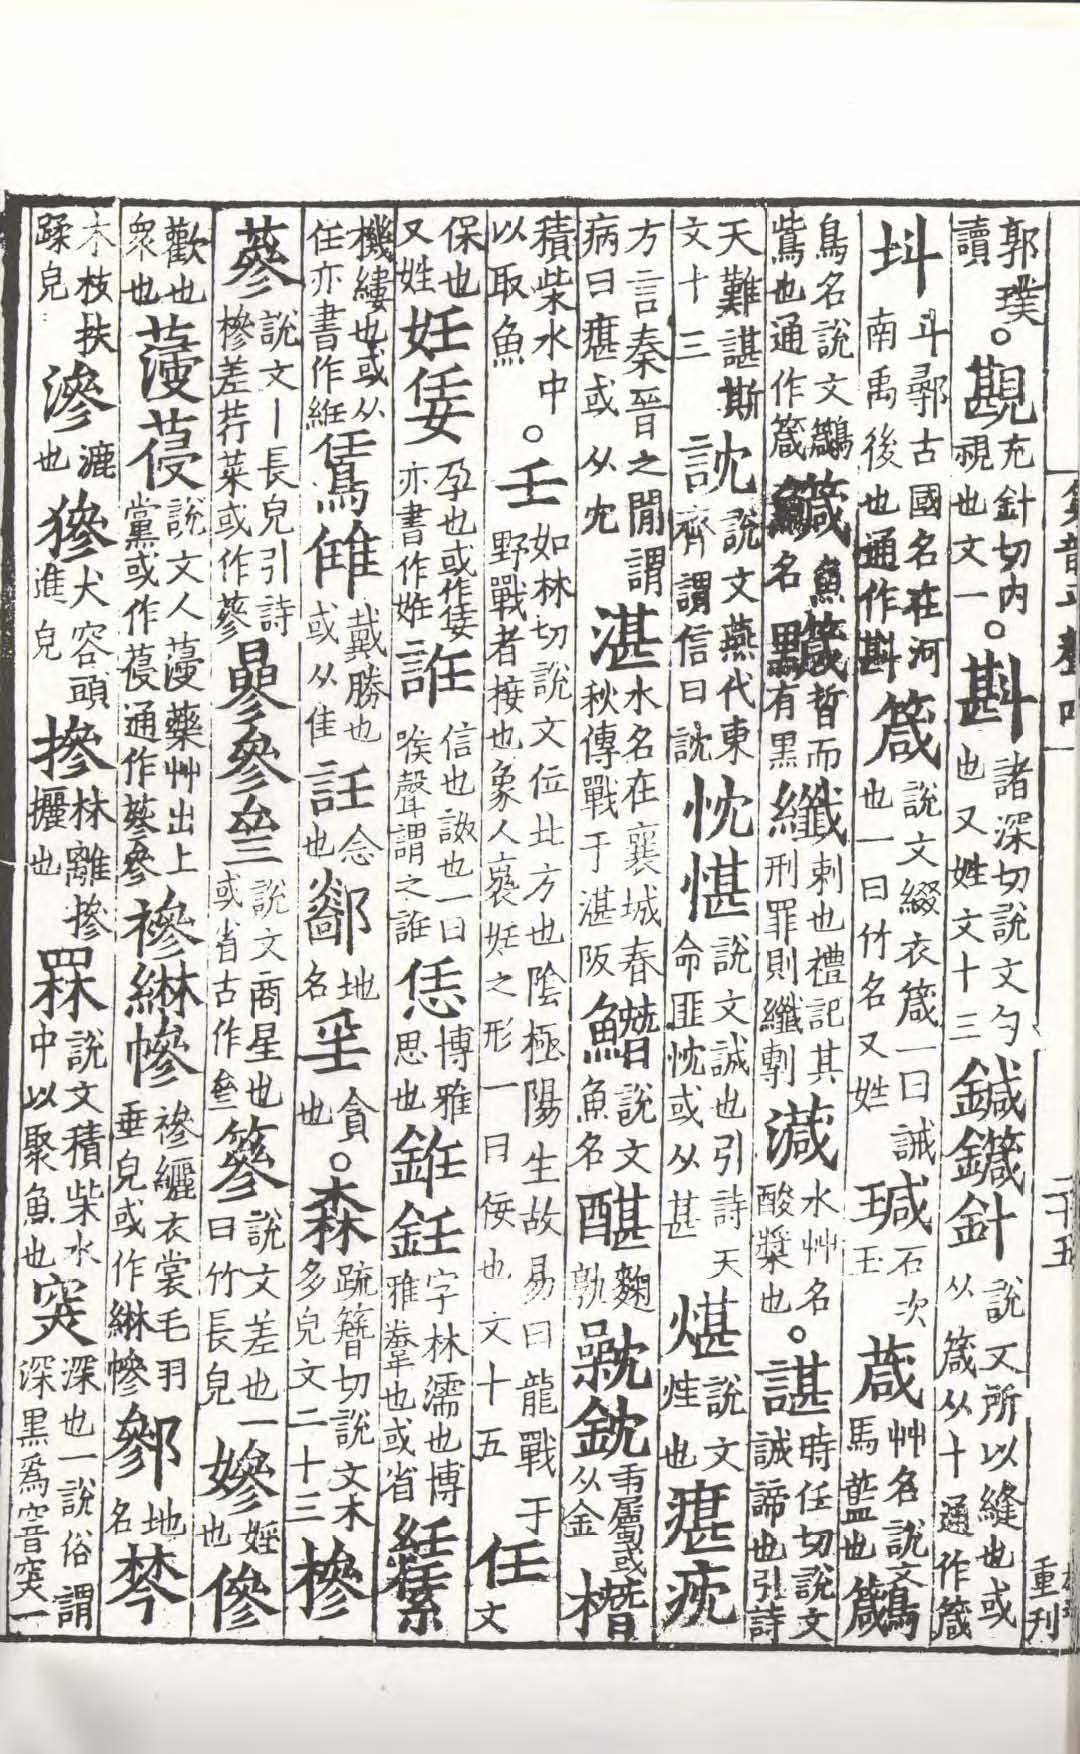 集韻平聲四 二十五 重刊
郭璞讀。覘充針切內視也文一。斟諸深切說文勺也又姓文十三鍼鑯針說文所以縫也或从箴从十通作箴
斗鄩古國名在河南禹後也通作斟箴說文綴衣箴一曰誡也一曰竹名又姓瑊石次玉葴艸名說文馬藍也
鳥名說文鴜也通作箴鱵魚名黬晳而有黑纖刺也禮記其刑罪則纖剸葴水艸名酸漿也。諶時任切說文誠諦也引詩
天難諶斯文十三訦說文燕代東齊謂信曰訦忱愖說文誠也引詩天命匪忱或从甚煁說文烓也㽎
方言秦晉之閒謂病曰㽎或从冘湛水名在襄城春秋傳戰于湛阪說文魚名麴鈂臿屬或从金橬
積柴水中以取魚。壬如林切說文位北方也陰極陽生故易曰龍戰于野戰者接也象人褢妊之形一曰佞也文十五任文
保也又姓妊㛛孕也或作㛛亦書作姙信也也一曰喉聲謂之恁博雅思也銋鈓字林濡也博雅韏也或省紝
機縷也或从任亦書作絍鵀戴勝也或从隹念也地名㸒貪也。森疏簪切說文木多皃文二十三槮
說文丨長皃引詩槮差荇菜或作蔘曑參叄說文商星也或省古作叄篸說文差也一曰竹長皃㜗婬也傪
歡也眾也薓葠說文人薓藥艸出上黨或作葠通作蔘參襂綝幓襂纚衣裳毛羽垂皃或作綝幓地名棽
木枝扶蹂皃滲漉也犬容頭進皃摻林離摻攦也罧說文積柴水中以聚魚也突深也一說俗謂深黑爲窨突一